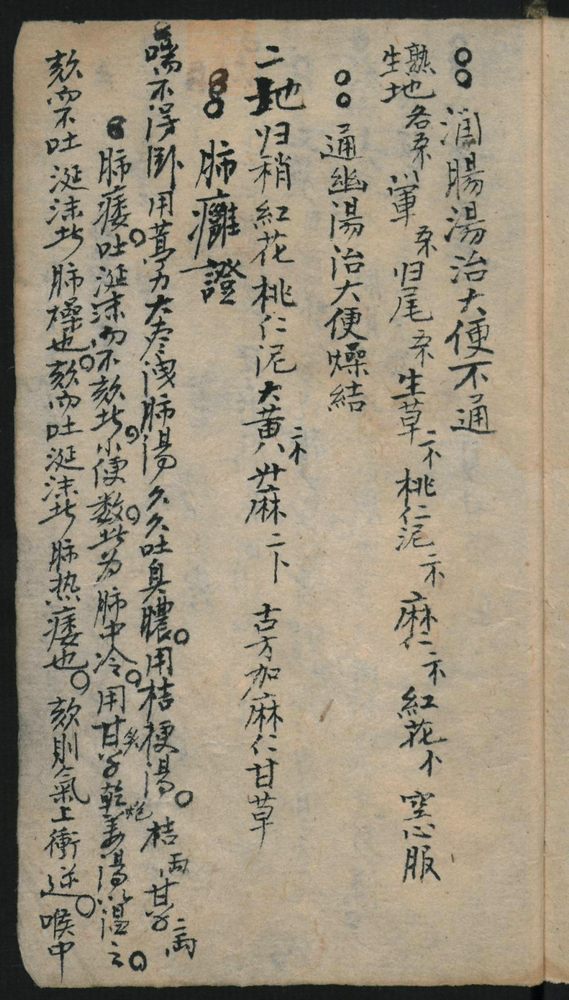 潤腸湯治大便不通
熟地 生地 各 軍 归尾 生草 桃仁泥 麻仁 紅花 空心服
通幽湯治大便燥結
二地 归稍 紅花 桃仁泥 大黃 升麻 古方加麻仁甘草
肺癰證
喘不得卧 用葶藶大枣瀉肺湯 久久吐臭膿 用桔梗湯 桔 兩 甘草 二兩
肺痿吐涎沫而不欬 小便數 此为肺中冷 用甘草炙乾姜炮湯溫之
欬而不吐涎沫 肺燥也 欬而吐涎沫 肺热痿也 欬則氣上衝逆喉中